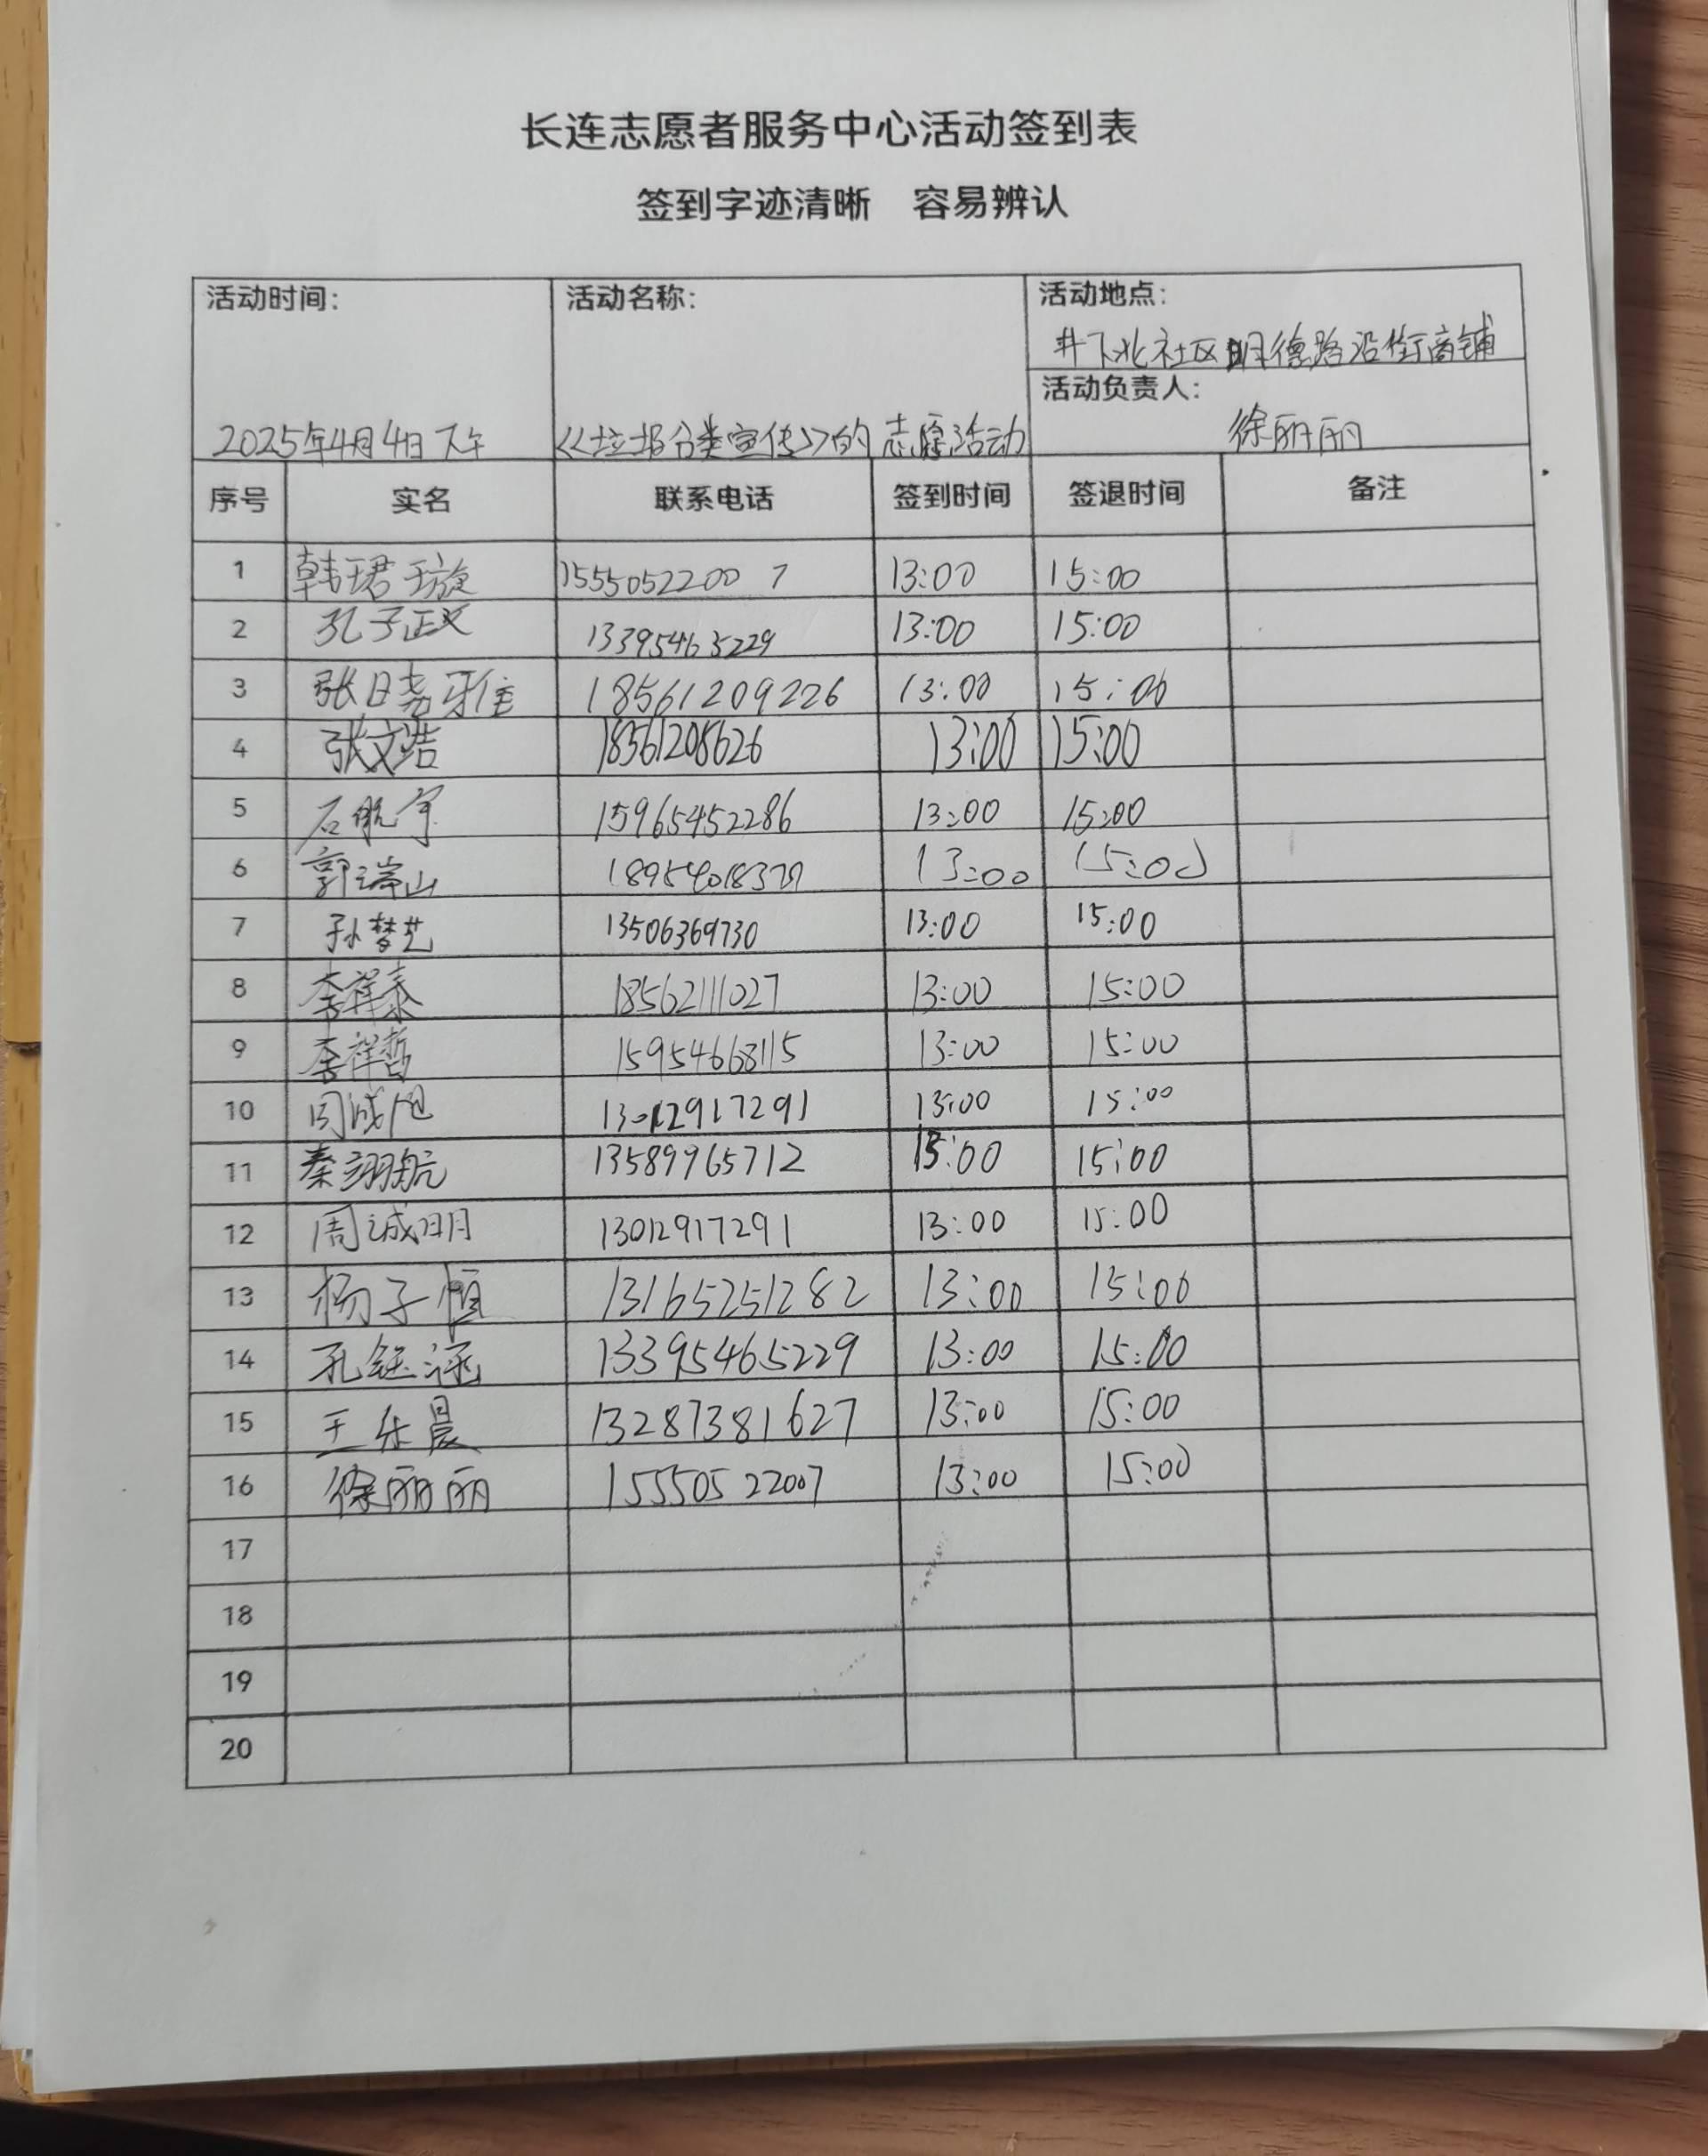 长连志愿者服务中心活动签到表
签到字迹清晰 容易辨认
活动时间: 活动名称: 活动地点:
井下北社区明德路沿街商铺
活动负责人:
2025年4月4日下午 <<垃圾分类宣传>>的志愿活动 徐丽丽
序号 实名 联系电话 签到时间 签退时间 备注
1 韩珺璇 15550522007 13:00 15:00
2 孔子正义 13395465229 13:00 15:00
3 张晓雅 18561209226 13:00 15:00
4 张文浩 18561208626 13:00 15:00
5 石航宇 15965452286 13:00 15:00
6 郭瑞山 13:00 15:00
7 孙梦艺 13506369730 13:00 15:00
8 李祥泰 18562111027 13:00 15:00
9 李祥哲 15954668115 13:00 15:00
10 周诚旭 13012917291 13:00 15:00
11 秦翊航 13589965712 13:00 15:00
12 周诚明 13012917291 13:00 15:00
13 杨子恒 13165251282 13:00 15:00
14 孔钰涵 13395465229 13:00 15:00
15 王乐晨 13287381627 13:00 15:00
16 徐丽丽 15550522007 13:00 15:00
17
18
19
20